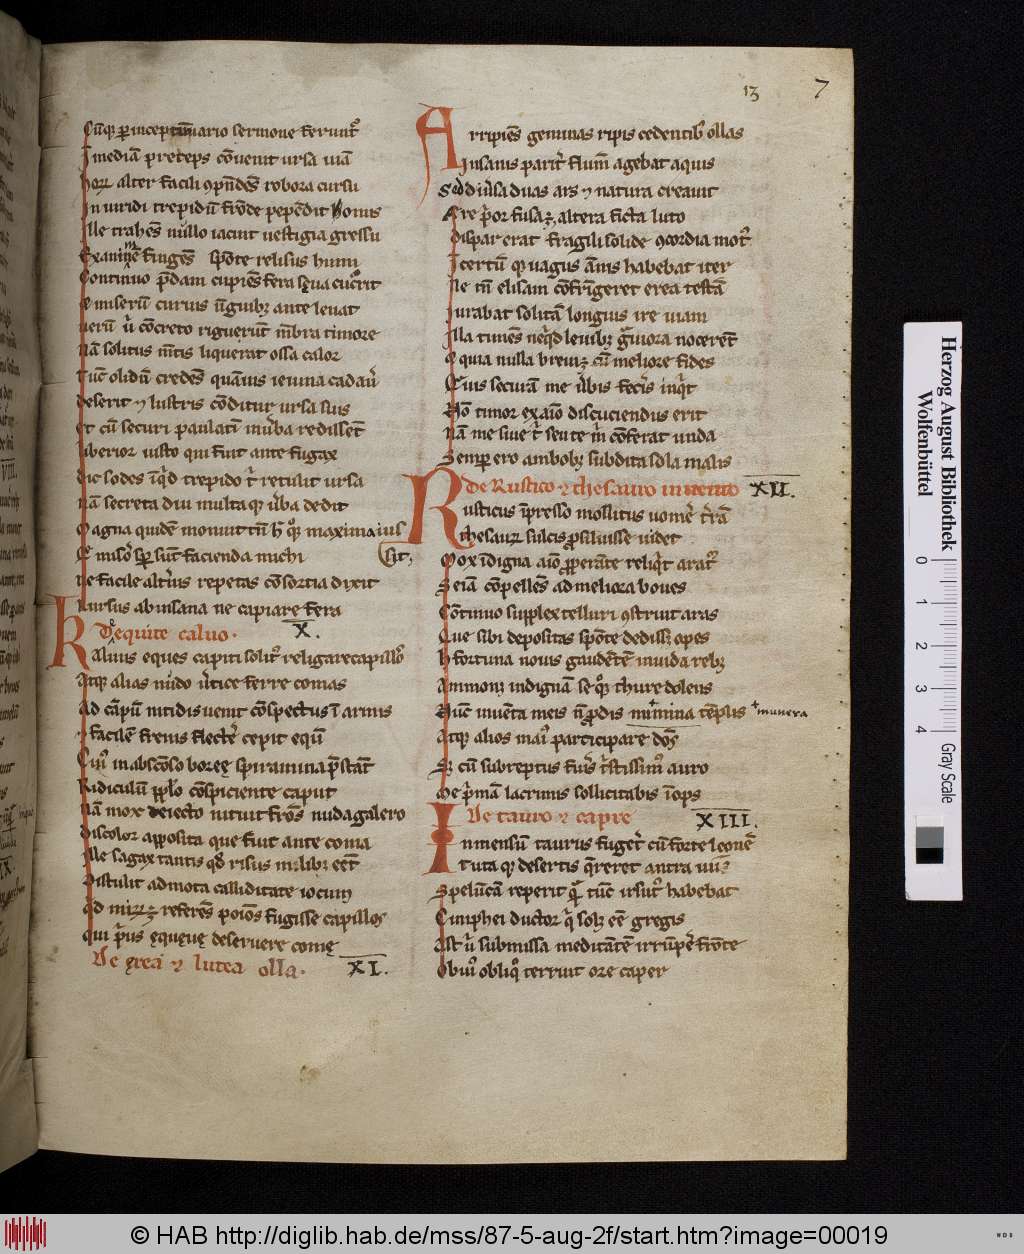 13 7
Cūq; ꝑ inceptū uario sermone ferunt᷑
Imediā preceps cōuenit ursa uiā
Horꝝ alter facili ꝯp̄ndēs robora cursu
In uiridi trepidū frōde pepēdit honus
Ille trahēs nullo iacuit uestigia gressu
Exanimē fingēs spōte relisus humi
Continuo p̄dam cupiēs fera sęua cucr̄rit
& miserū curuis ūguibꝫ ante leuat
uerū ū cōcreto riguerūt mēbra timore
Nā solitus mētis liquerat ossa calor
Tūc olidū credēs quāuis ieiuna cadau̓
deserit ⁊ lustris cōditur ursa suis
et cū securi paulatī inu̓ba redissēt
liberior iusto qui fuit ante fugax
dic sodes īqͥd trepido t̄ retulit ursa
Nā secreta diu multa qꝫ u̓ba dedit
Magna quidē monuit tn̄ h̄ qꝫ maxima ius
sit,
Q̄ miso̓ sꝑ sūt facienda michi
ne facile alt̓ius repetas cōsortia dixit
Rursus ab insana ne capiare fera
De equite caluo. X.
Kaluus eques capiti solit᷒ religare capillos
Atqꝫ alias nudo u̓tice ferre comas
Ad cāpū nitidis uenit cōspectus ī armis
⁊ facilē frenis flecte̓ cepit equū
Cui᷒ in absc̄oso boreę spiramina p̄stāt
Ridiculū ppl̓o cōspiciente caput
Nā mox deiecto nituit frōs nuda galero
discolor apposita que fuit ante coma
Ille sagax tantis qd̓ risus milibꝫ eēt
Distulit admota calliditate iocum
Qͥd mirꝝ referēs pōitos fugisse capillos
qui p̓us ęquęuę deseruere comę
De ęrea ⁊ lutea olla. XI.
Arripiēs geminas ripis cedentibꝫ ollas
Insanis parit̓ flum̄ agebat aquis
Sed diu̓sa duas ars ⁊ natura creauit
Aere p̓or fusa ē, altera ficta luto
dispar erat fragili solide ꝯcordia mot᷒
Icertū qꝫ uagus āmnis habebat iter
Ne tn̄ elisam cōfrīgeret erea testā
Iurabat solitā longius ire uiam
Illa timēs neqͥd leuibꝫ gͣuiora nocerēt
& quia nulla breui ē cū meliore fides
Quis securā me u̓bis fecͥs inqͥt
Nō timor ex aīo discuciendus erit
Nā me siue t̓ seu te m̓ cōferat unda
Semꝑ ero ambobꝫ subdita sola malis
De Rustico ⁊ thesauro inuento XII.
Rusticus īpresso mollitus uome̓ t̓rā
Thesaurꝝ sulcis ꝓsiluisse uidet
Mox īdigna aīo ꝓperāte reliqͥt arat᷒
Seīa cōpellēs ad meliora boues
Cōtinuo supplex telluri ꝯstruit aras
Que sibi depositas spōte dedissꝫ opes
h̄ fortuna nouis gaudētē inuida rebꝫ
Ammonꝫ indignā se qꝫ thure dolens
Nūc inuēta meis n̄ ꝓdis mīmina tēplis munera
Atqꝫ alios maui᷒ participare dōs
Sꝫ cū subreptus fu̓is t̓stissim᷒ auro
Me p̓mā lacrimis sollicitabis īops
De tauro ⁊ capre XIII.
Inmensū taurus fuge̓t cū forte leonē
Tuta qꝫ desertis q̄reret antra uiis
Speluncā reperit qͣ tūc irsut᷒ habebat
Cinphei ductor qͥ solꝫ eē gregis
Ast ū submissa meditātē irrūpe̓ frōte
Obui᷒ obliqͦ terruit ore caper
Herzog August Bibliothek
Wolfenbüttel
0 1 2 3 4
Gray Scale
© HAB http://diglib.hab.de/mss/87-5-aug-2f/start.htm?image=00019